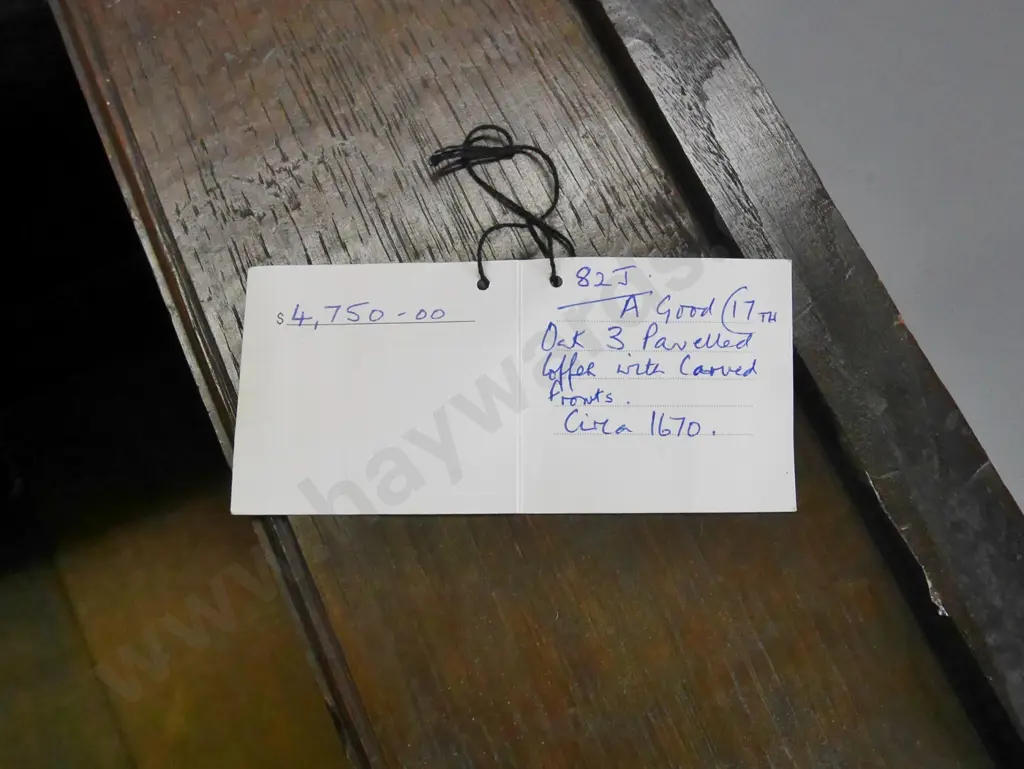 $4,750-00
82J.
A Good 17TH
Oak 3 Panelled
Coffer with Carved
fronts.
Circa 1670.
www.haywards.